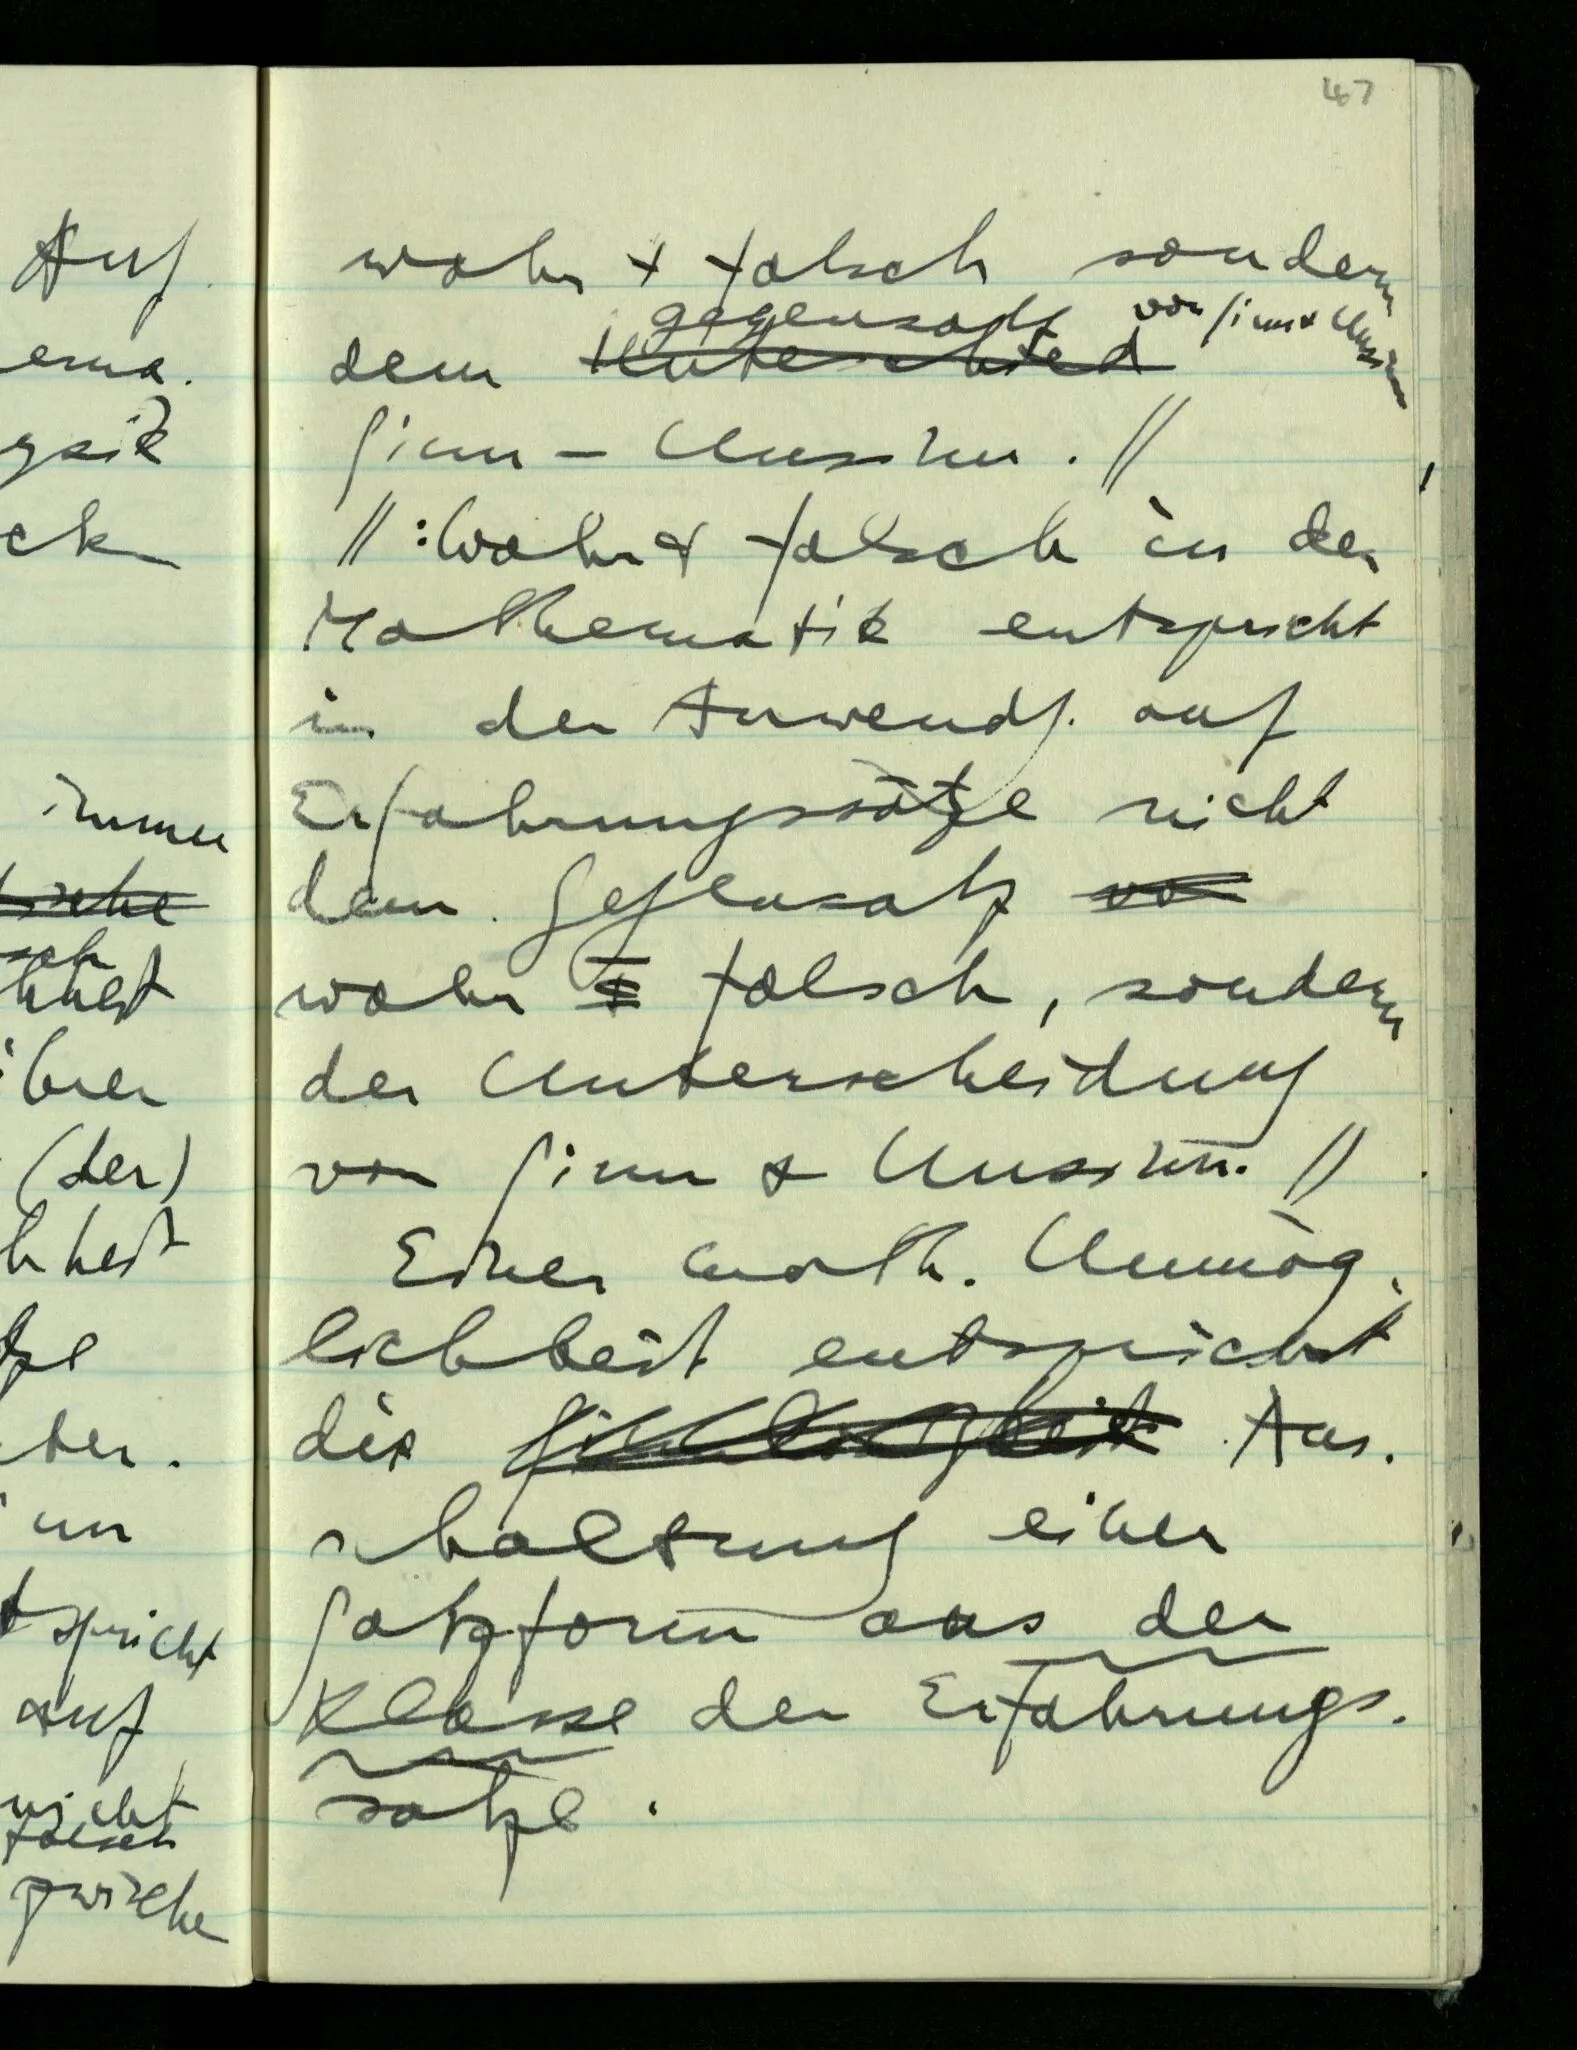 47
Auf
erna.
ysik
ck
immer
ihrer
(der)
hheit
tze
ter.
im
tspricht
auf
nicht
falsch
zwische
wahr + falsch sondern
gegensatz von Sinn & Unsinn
dem Unterschied
Sinn – Unsinn. //
// : Wahr & falsch in der
Mathematik entspricht
in der Anwendg. auf
Erfahrungssätze nicht
dem Gegensatz vo
wahr & falsch, sondern
der Unterscheidung
von Sinn & Unsinn. //
Einer math. Unmög.
lichkeit entspricht
die Aus.
schaltung einer
Satzform aus der
Klasse der Erfahrungs.
satze.